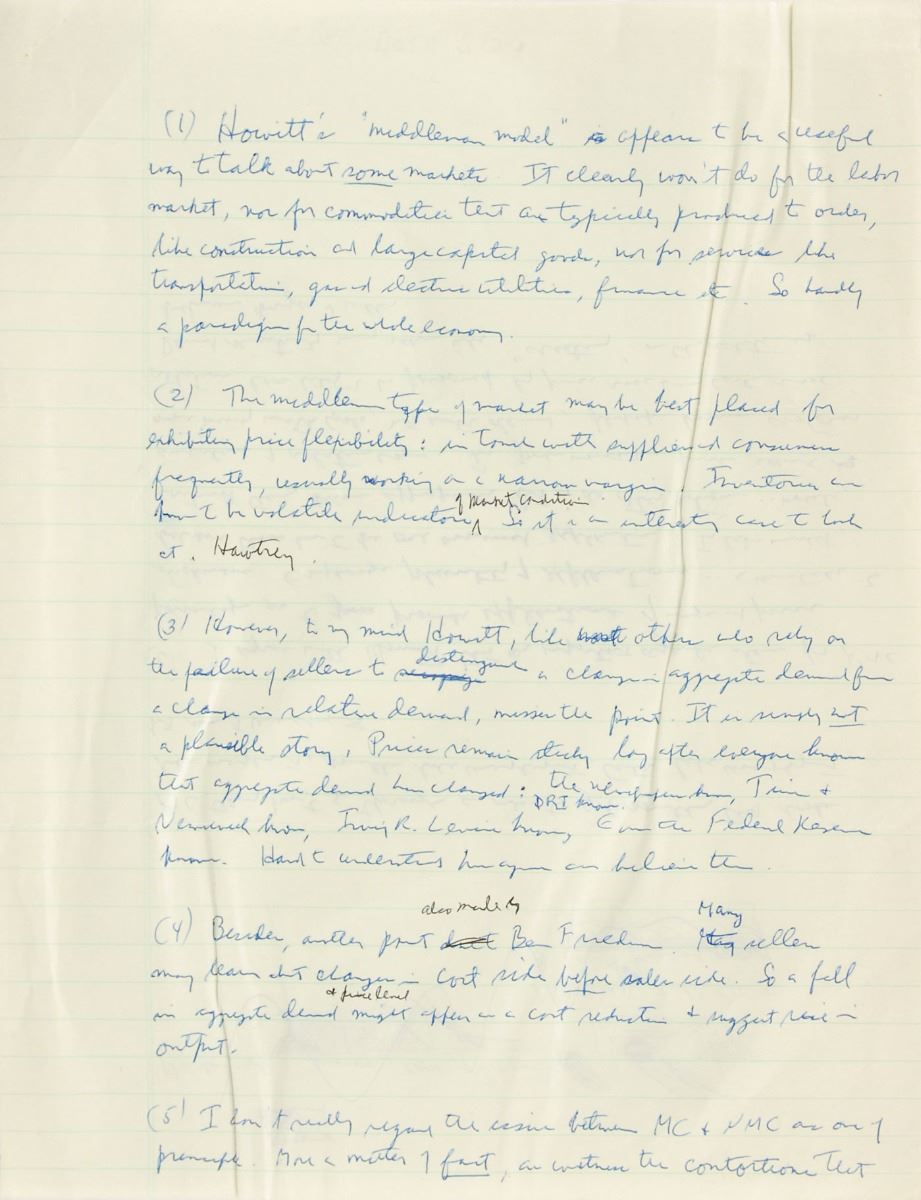 (1) Howitt's "middleman model" appears to be a useful
way to talk about some markets. It clearly won't do for the labor
market, nor for commodities that are typically produced to order,
like construction and large capital goods, nor for services like
transportation, gas and electric utilities, finance etc. So hardly
a paradigm for the whole economy.
(2) The middleman type of market may be best placed for
exhibiting price flexibility: in touch with suppliers and consumers
frequently, usually working on a narrow margin. Inventories are
known to be volatile indicators of market condition. So it is an interesting case to look
at. Hawtrey.
(3) However, to my mind Howitt, like others who rely on
the failure of sellers to distinguish a change in aggregate demand from
a change in relative demand, misses the point. It is simply not
a plausible story. Prices remain sticky long after everyone knows
that aggregate demand has changed: the newspapers know, Time &
DRI knows.
Newsweek know, Irving R. Levine knows, Even the Federal Reserve
knows. Hard to understand how anyone can believe this.
(4) Besides, another point also made by Ben Friedman. Many sellers
may learn about changes in cost side before sales side. So a fall
in aggregate demand & price level might appear as a cost reduction & suggest rise in
output.
(5) I don't really regard the issue between MC & NMC as one of
principle. More a matter of fact, as witness the contortions that